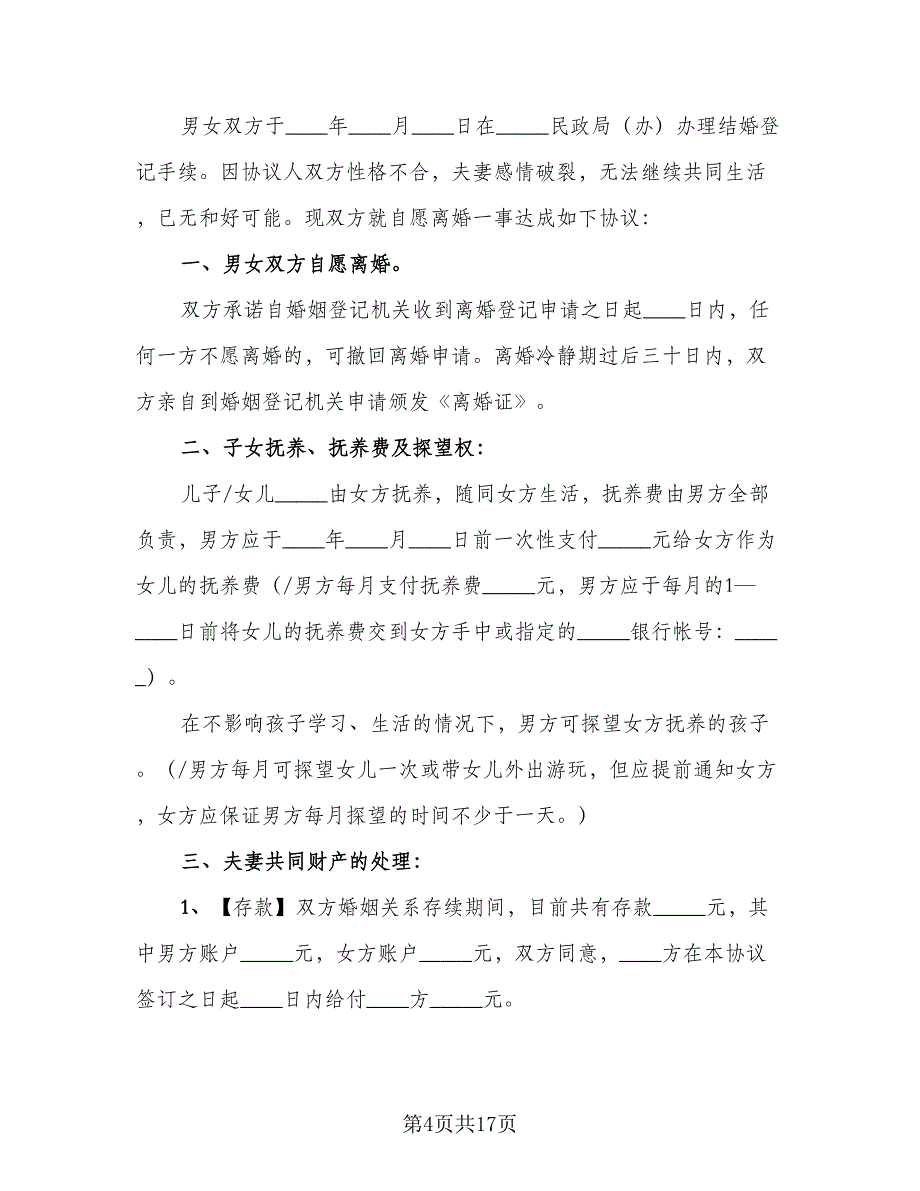 男女双方于____年____月____日在_____民政局（办）办理结婚登
记手续。因协议人双方性格不合，夫妻感情破裂，无法继续共同生活
，已无和好可能。现双方就自愿离婚一事达成如下协议：
一、男女双方自愿离婚。
双方承诺自婚姻登记机关收到离婚登记申请之日起____日内，任
何一方不愿离婚的，可撤回离婚申请。离婚冷静期过后三十日内，双
方亲自到婚姻登记机关申请颁发《离婚证》。
二、子女抚养、抚养费及探望权：
儿子/女儿_____由女方抚养，随同女方生活，抚养费由男方全部
负责，男方应于____年____月____日前一次性支付_____元给女方作为
女儿的抚养费（/男方每月支付抚养费_____元，男方应于每月的1—
____日前将女儿的抚养费交到女方手中或指定的_____银行帐号：____
_）。
在不影响孩子学习、生活的情况下，男方可探望女方抚养的孩子
。（/男方每月可探望女儿一次或带女儿外出游玩，但应提前通知女方
，女方应保证男方每月探望的时间不少于一天。）
三、夫妻共同财产的处理：
1、【存款】双方婚姻关系存续期间，目前共有存款_____元，其
中男方账户_____元，女方账户_____元，双方同意，____方在本协议
签订之日起____日内给付____方_____元。
第4页共17页